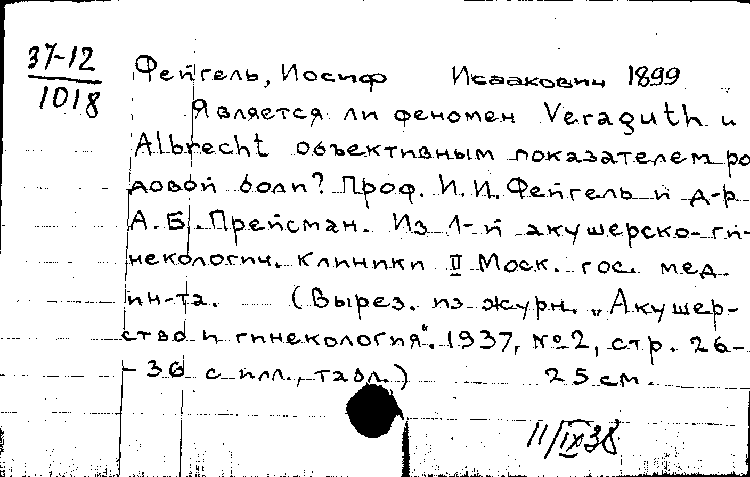 37-12
1018
Фейгель, Иосиф Исаакович 1899
Является ли феномен Veraguth и
Albrecht объективным показателем ро
довой боли? Проф. И. И. Фейгель и д-р
А. Б. Прейсман. Из 1-й акушерско-ги-
некологич. клиники II Моск. гос. мед.
ин-та. (Вырез. из журн. „Акушер-
ство и гинекология“. 1937, №2, стр. 26-
-36 с илл., табл.) 25 см.
11/IX38